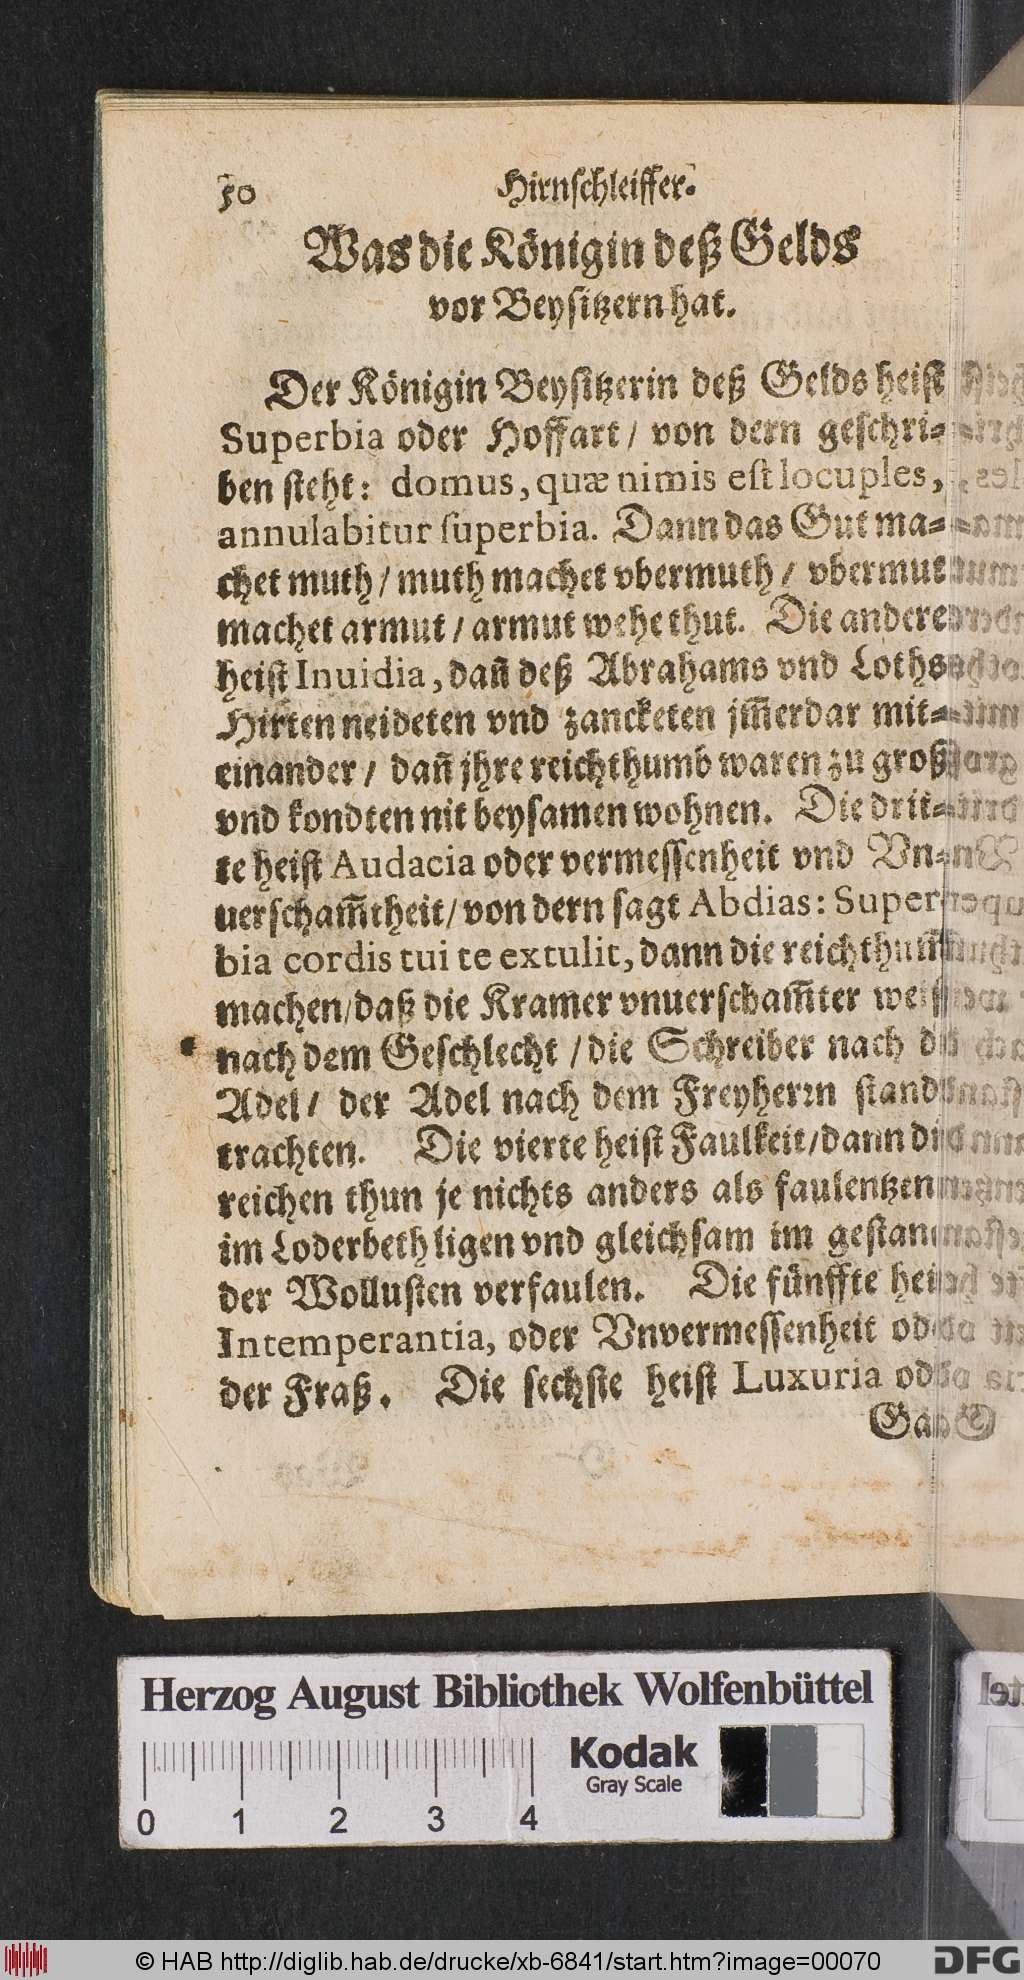 50 Hirnschleiffer.
Was die Königin deß Gelds
vor Beysitzern hat.
Der Königin Beysitzerin deß Gelds heist
Superbia oder Hoffart / von dern geschri-
ben steht: domus, quæ nimis est locuples,
annulabitur superbia. Dann das Gut ma-
chet muth / muth machet vbermuth / vbermut
machet armut / armut wehe thut. Die andere
heist Inuidia, dañ deß Abrahams vnd Loths
Hirten neideten vnd zancketen jm̃erdar mit-
einander / dañ jhre reichthumb waren zu groß
vnd kondten nit beysamen wohnen. Die drit-
te heist Audacia oder vermessenheit vnd Vn-
uerscham̃theit / von dern sagt Abdias: Super-
bia cordis tui te extulit, dann die reichthum̃
machen / daß die Kramer vnuerscham̃ter weis
nach dem Geschlecht / die Schreiber nach
Adel / der Adel nach dem Freyherrn stand
trachten. Die vierte heist Faulkeit / dann
reichen thun je nichts anders als faulentzen
im Loderbeth ligen vnd gleichsam im
der Wollusten verfaulen. Die fünffte
Intemperantia, oder Vnvermessenheit
der Fraß. Die sechste heist Luxuria
Herzog August Bibliothek Wolfenbüttel
Kodak
Gray Scale
0 1 2 3 4
© HAB http://diglib.hab.de/drucke/xb-6841/start.htm?image=00070
DFG